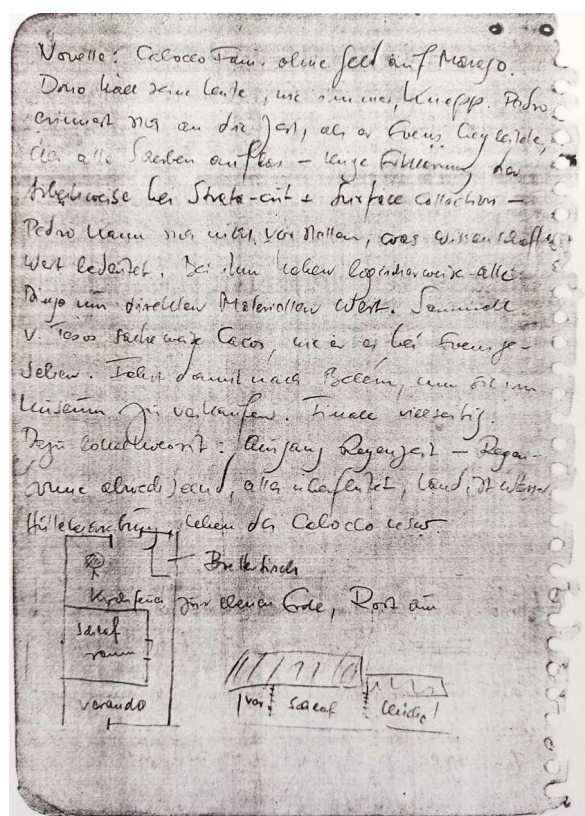 Novelle: Caboclo Fam. ohne Geld auf Marajo.
Dono hält seine Leute, wie immer, knapp. Pedro
erinnert sich an die Zeit, als er Evens begleitete,
der alle Scherben auflas – lange Erklärung der
Arbeitsweise bei Strata-cut + Surface Collection –
Pedro kann sich nicht vorstellen, was wissenschaftl.
Wert bedeutet. Bei ihm haben logischerweise alle
Dinge nur direkten Materiellen Wert. Sammelt
v. Tesos sackeweise Cacos, wie er es bei Evens ge-
sehen. Fährt damit nach Belém, um sie im
Museum zu verkaufen. Finale vielseitig.
Dazu lohnenswert: Ausgang Regenzeit – Regen-
Sonne abwechselnd, alles überflutet, Land ist Wasser.
Leben der Caboclo usw.
Brettertisch
Küchenfeuer zur ebenen Erde, Rost am
Schlaf
raum
Varando
Var. Schlaf Küche